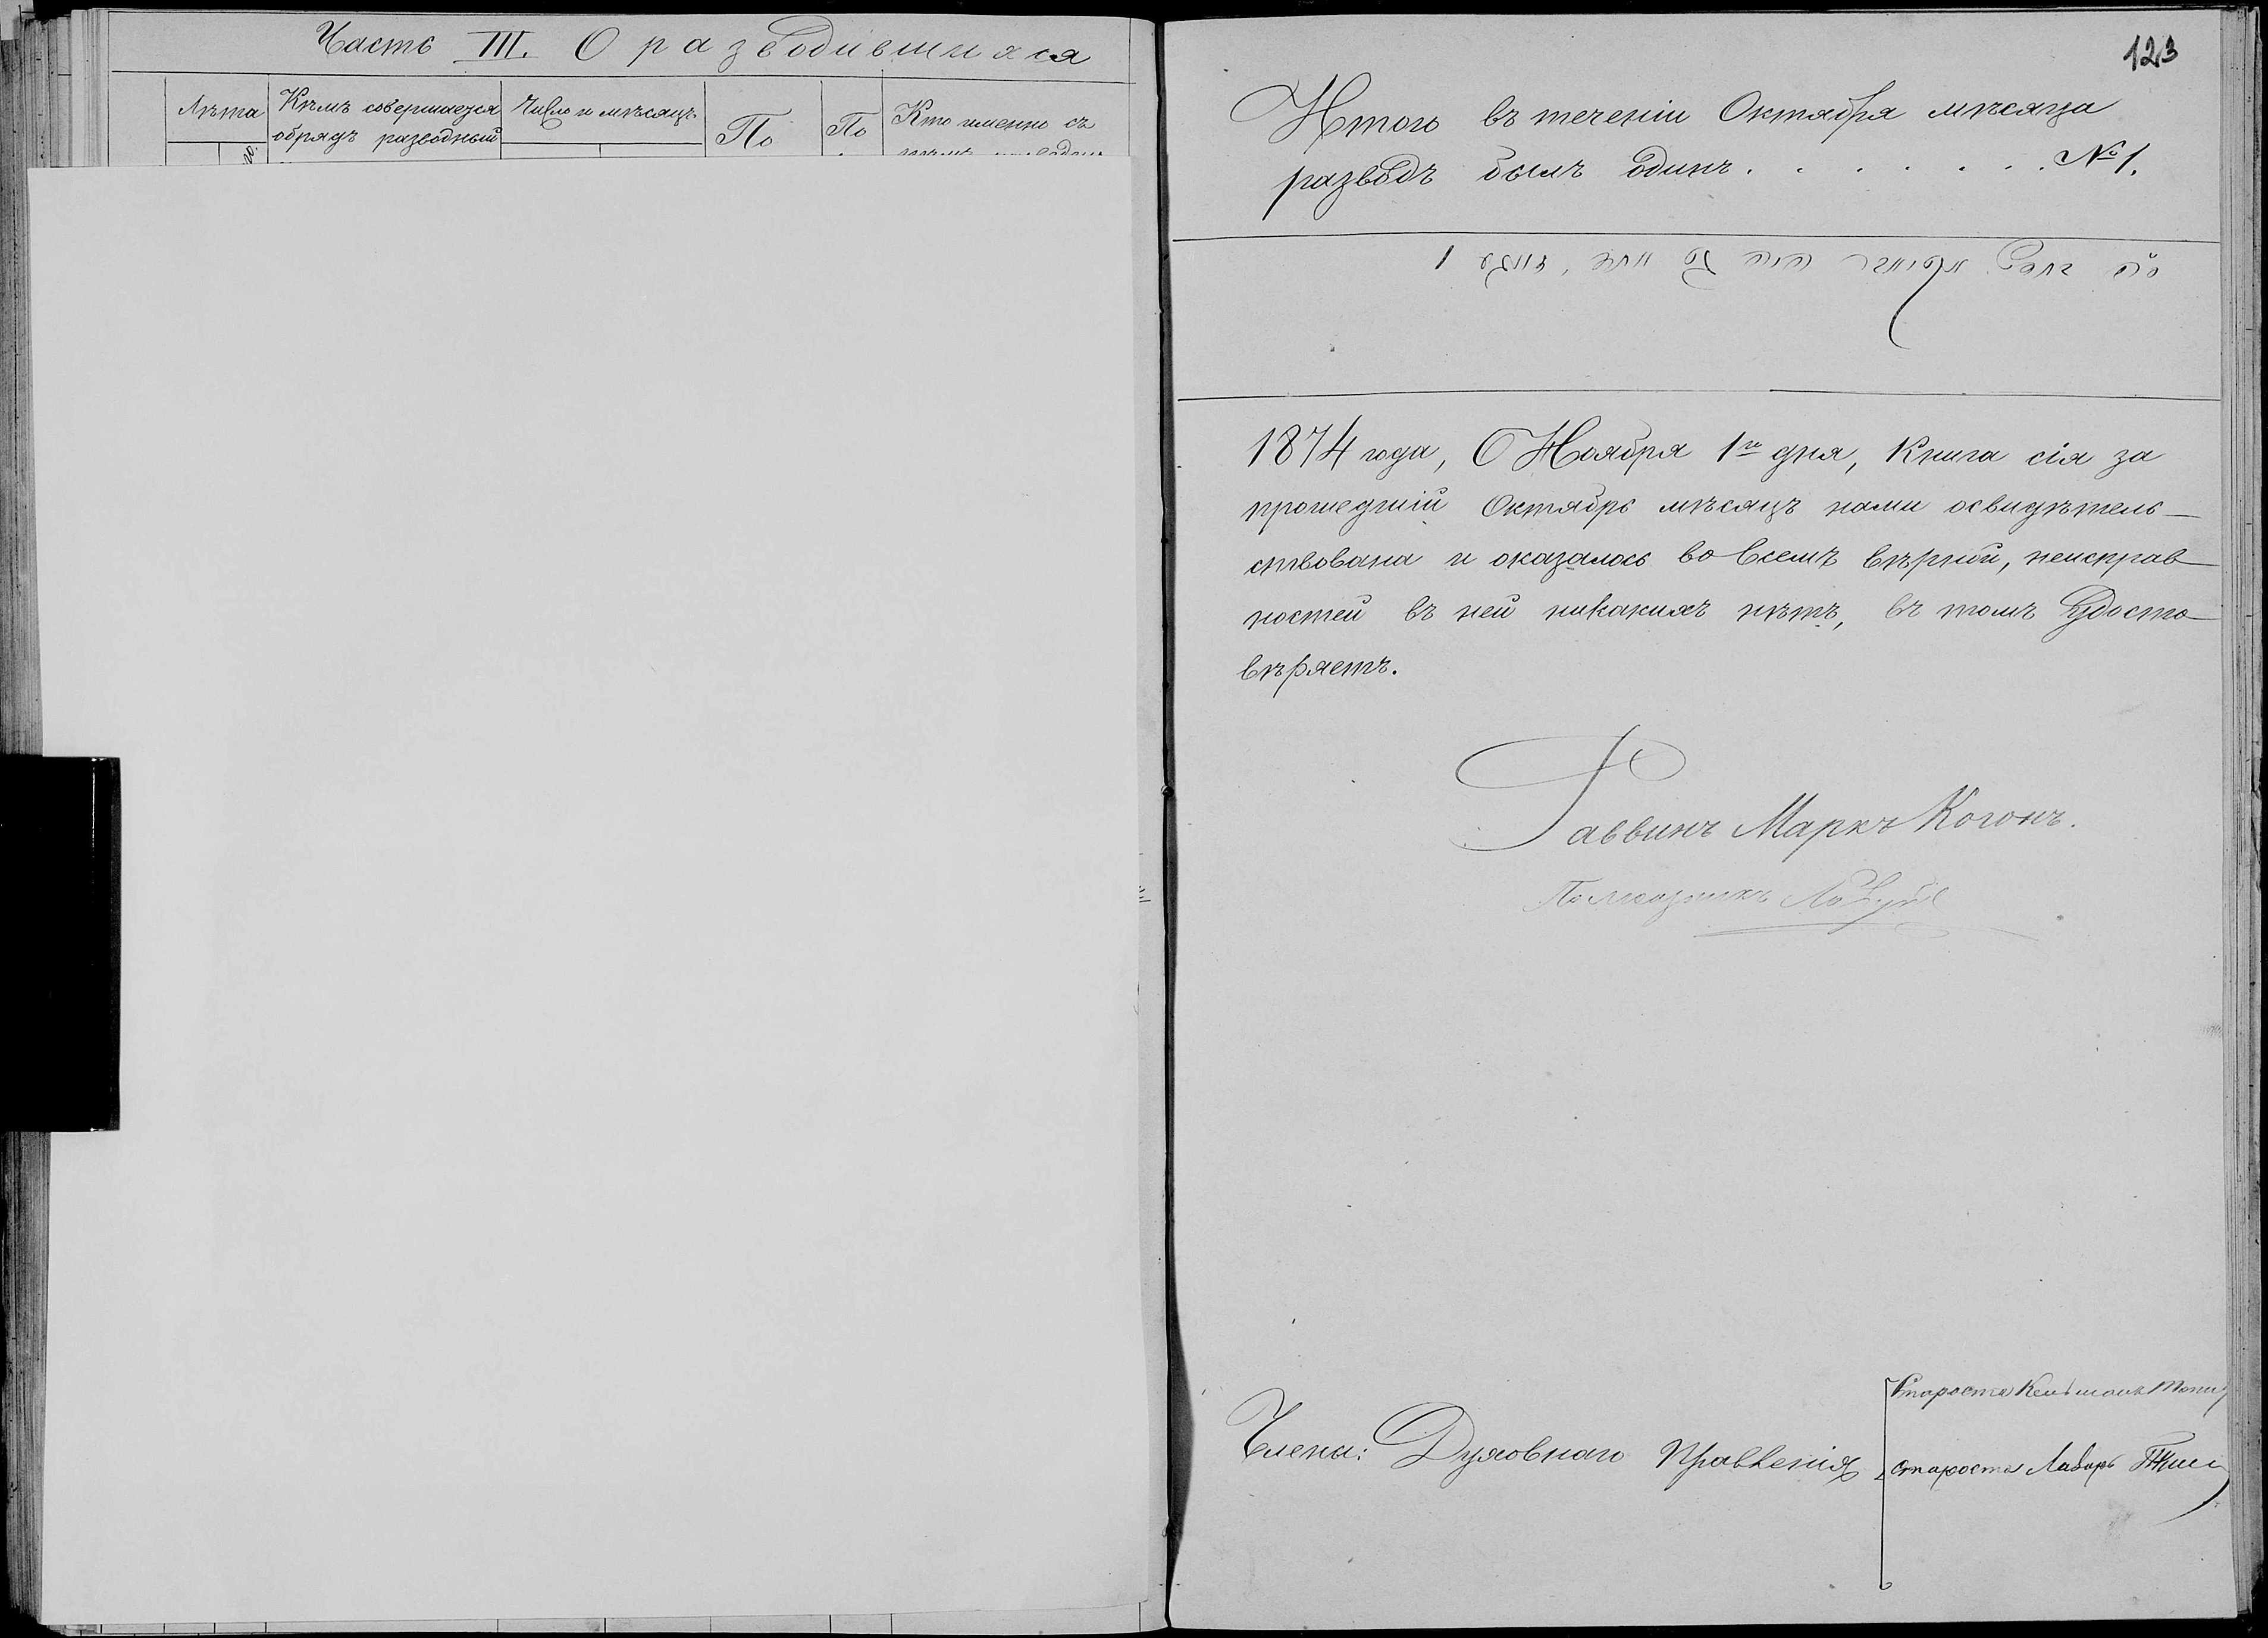 Часть III. О разводившихся
Лѣта
Кѣмъ совершается
обрядъ разводный
Число и мѣсяцъ
По
По
Кто именно съ
123
Итого въ теченіи Октября мѣсяца
разводъ былъ одинъ . . . . . . . №1.
1
1874 года, О Ноября 1го дня, Книга сія за
прошедшій Октябрь мѣсяцъ нами освидѣтель-
ствована и оказалось во всемъ вѣрной, неисправ
ностей въ ней никакихъ нѣтъ, въ томъ Удосто
вѣряетъ.
Раввинъ Маркъ Когонъ.
Члены: Духовнаго Правленія
Староста
староста Лазарь